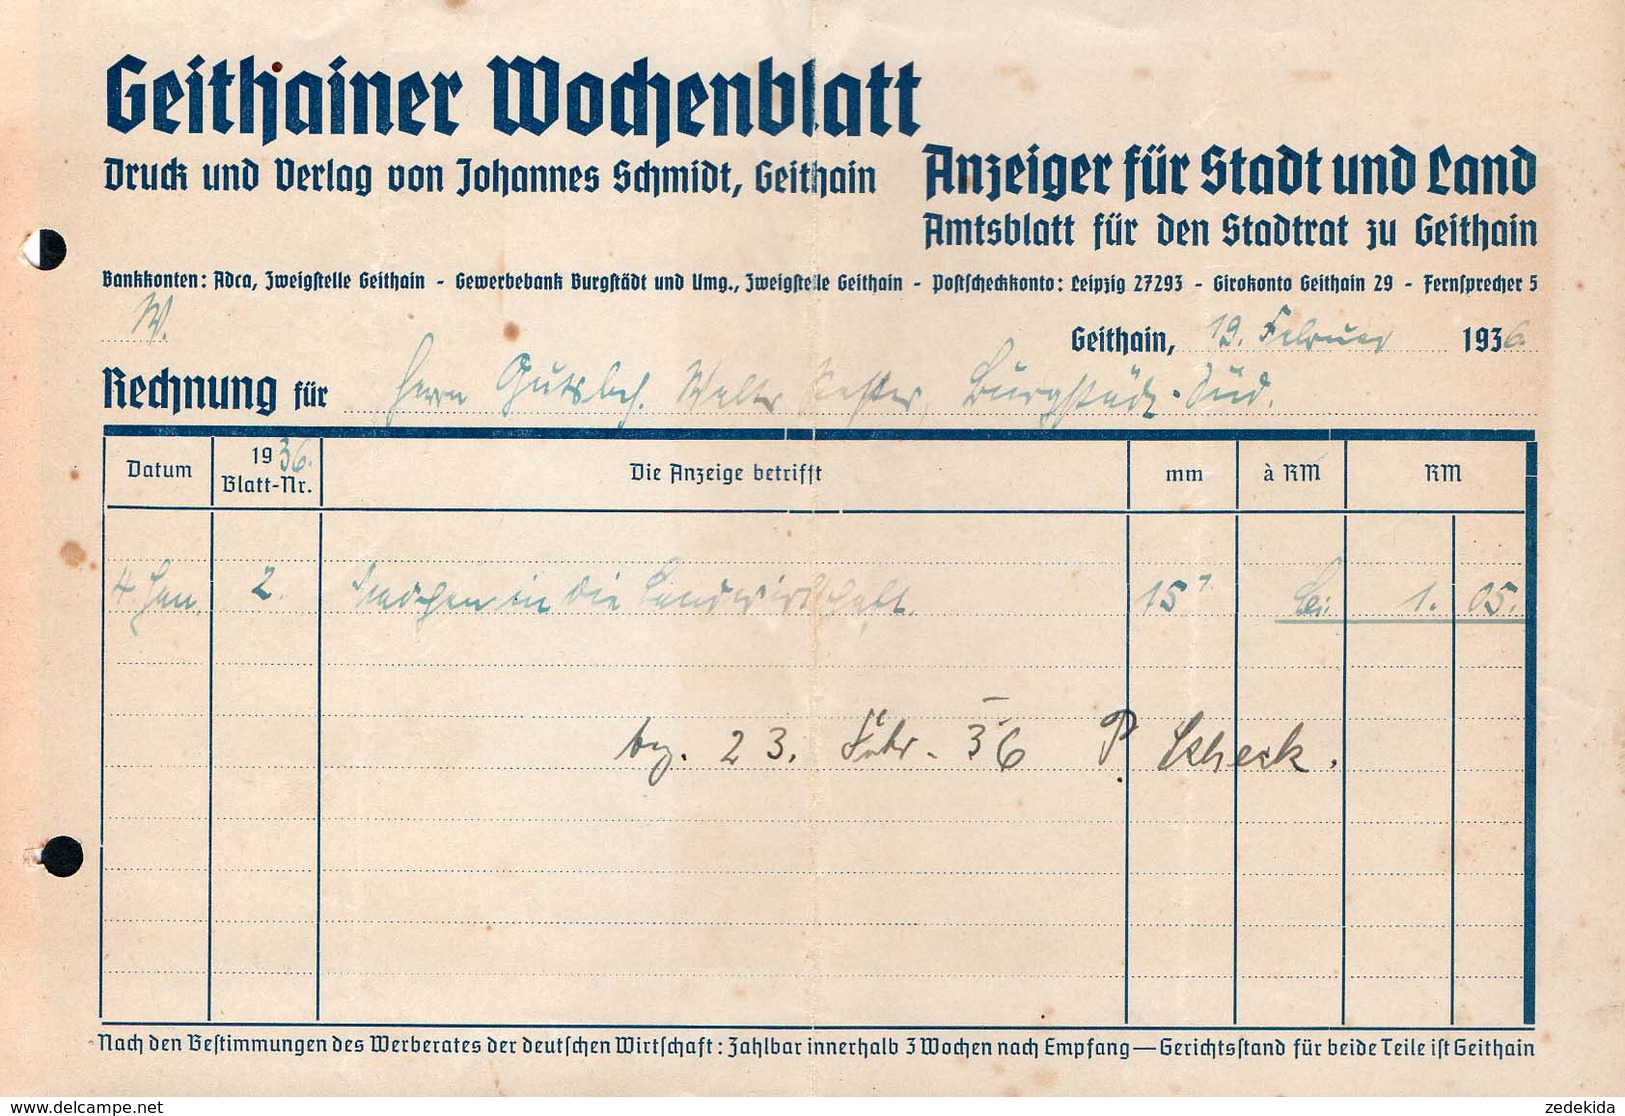 Geithainer Wochenblatt
Druck und Verlag von Johannes Schmidt, Geithain
Anzeiger für Stadt und Land
Amtsblatt für den Stadtrat zu Geithain
Bankkonten: Adca, Zweigstelle Geithain - Gewerbebank Burgstädt und Umg., Zweigstelle Geithain - Postscheckkonto: Leipzig 27293 - Girokonto Geithain 29 - Fernsprecher 5
W.
Geithain, 19. Februar 1936.
Rechnung für Herrn Gutsbes. Walter Burgstädt-Süd.
Datum 1936. Blatt-Nr. Die Anzeige betrifft mm à RM RM
4 Jan. 2. Mädchen in die Landwirtschaft. 15 7 1. 05.
bz. 23. Febr. 36 P. Scheck.
Nach den Bestimmungen des Werberates der deutschen Wirtschaft: Zahlbar innerhalb 3 Wochen nach Empfang — Gerichtsstand für beide Teile ist Geithain
www.delcampe.net
zedekida